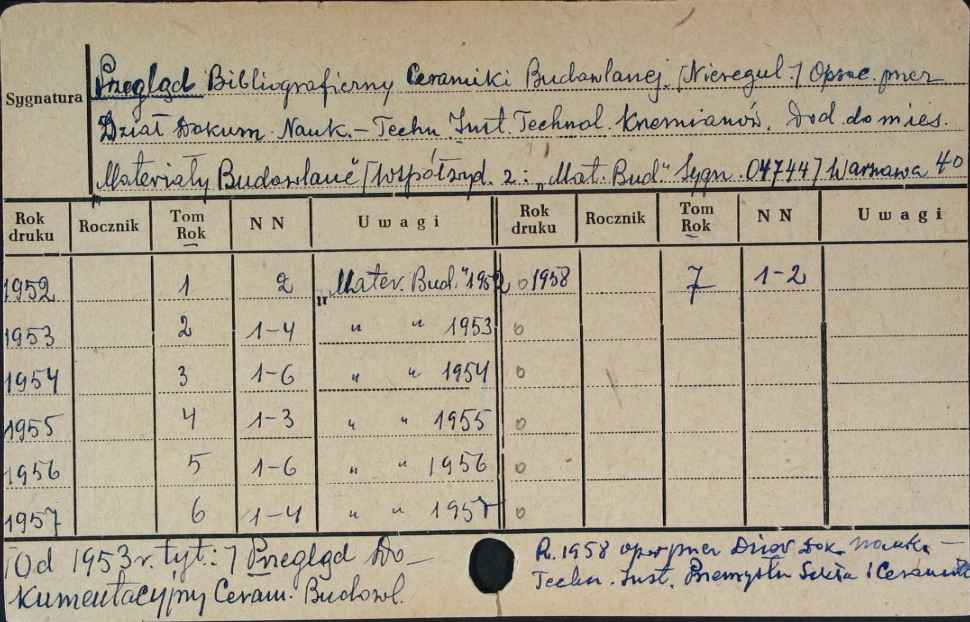 Sygnatura
Przegląd Bibliograficzny Ceramiki Budowlanej. [Nieregul.] Oprac. przez
Dział Dokum. Nauk.-Techn Inst. Technol. Krzemianów. Dod. do mies.
"Materiały Budowlane" [Współwyd. z: "Mat. Bud." Sygn. 04744] Warszawa 40
Rok druku Rocznik Tom Rok NN Uwagi Rok druku Rocznik Tom Rok NN Uwagi
1952 1 2 "Mater. Bud." 1952 o 1958 7 1-2
1953 2 1-4 " " 1953 o
1954 3 1-6 " " 1954 o
1955 4 1-3 " " 1955 o
1956 5 1-6 " " 1956 o
1957 6 1-4 " " 1957 o
[Od 1953 r. tyt.:] Przegląd Do-
kumentacyjny Ceram. Budowl.
R. 1958 opr. przez Dział Dok. Nauk.-
Techn. Inst. Przemysłu Szkła i Ceramiki